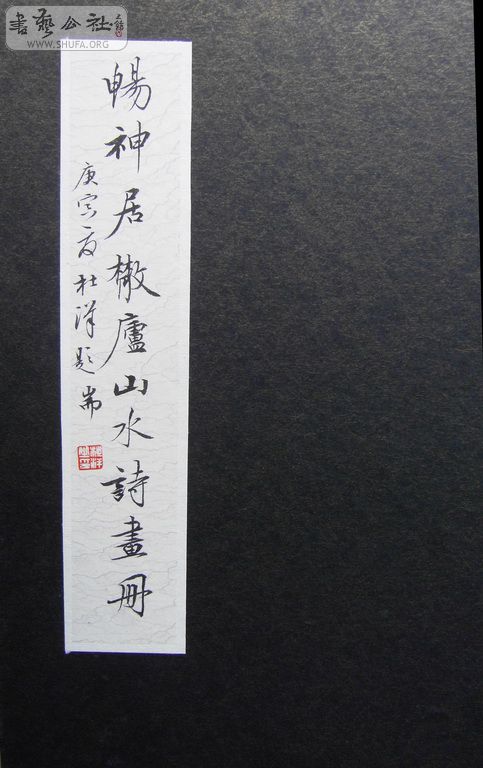 書藝公社
WWW.SHUFA.ORG
暢神居檄廬山水詩畫冊
庚寅夏杜洋題耑